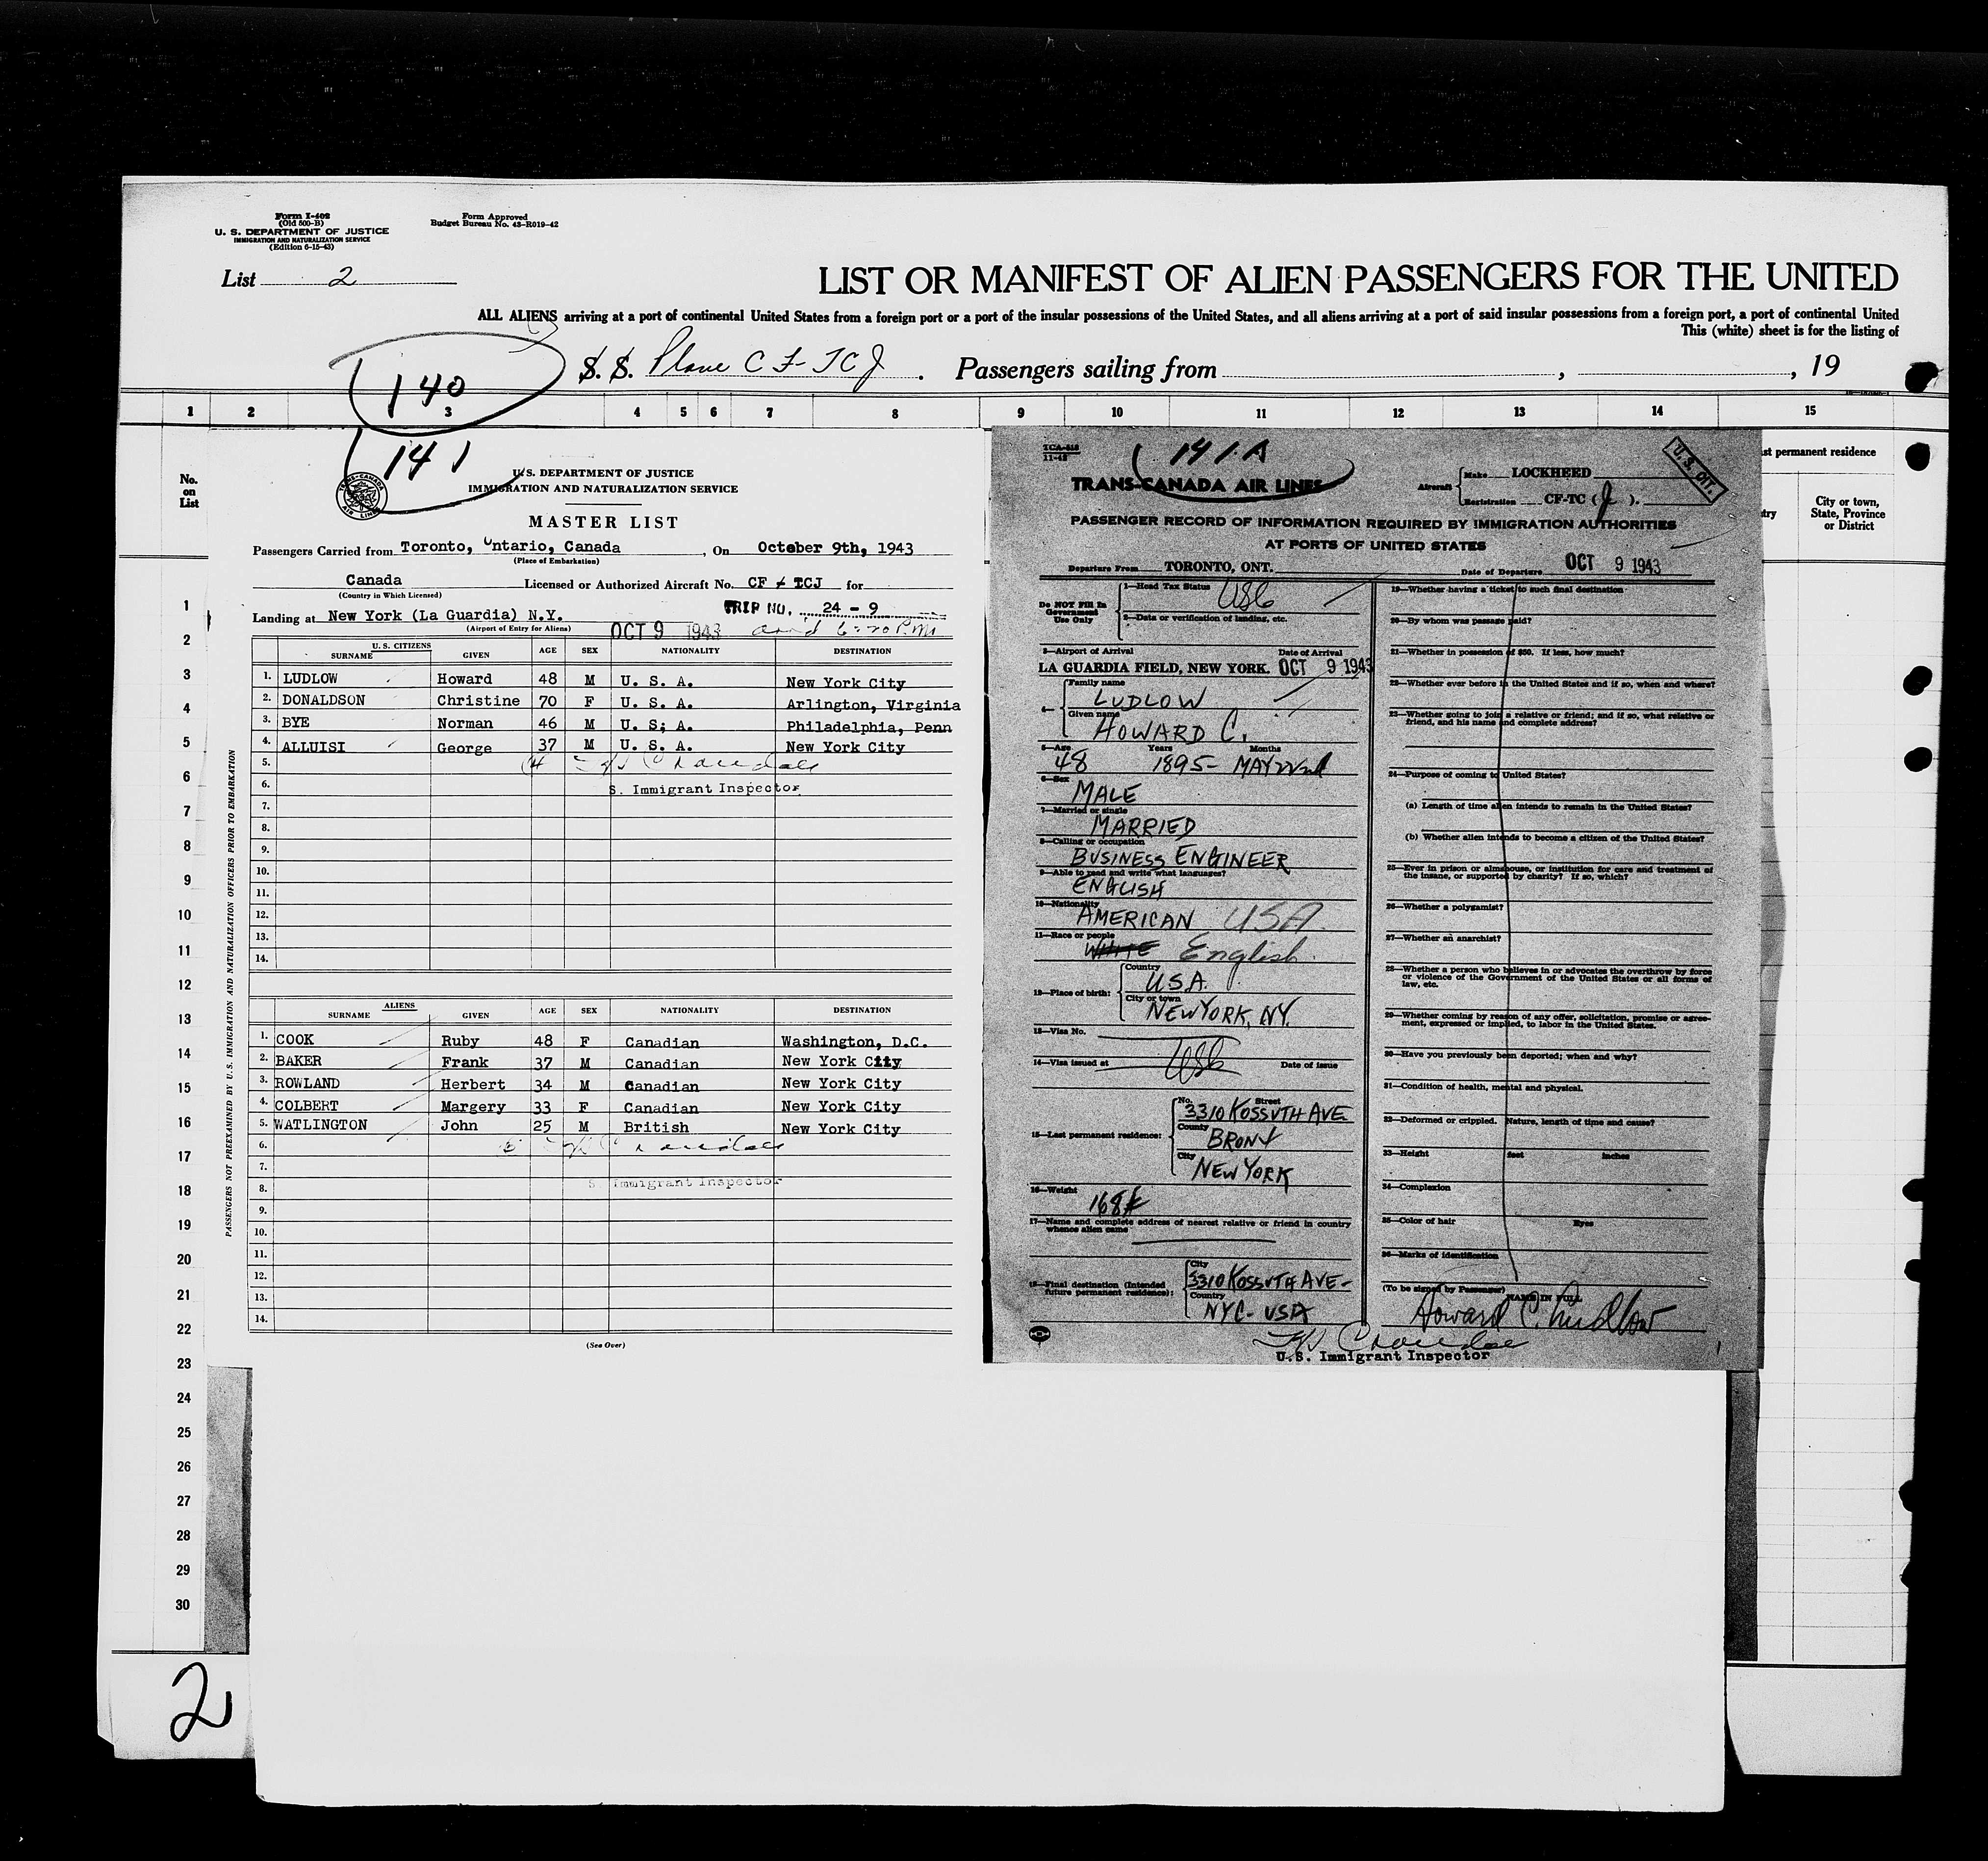 Form I-402
(Old 500-B)
U. S. DEPARTMENT OF JUSTICE
IMMIGRATION AND NATURALIZATION SERVICE
(Edition 6-15-43)
Form Approved
Budget Bureau No. 43-R019-42
List 2
LIST OR MANIFEST OF ALIEN PASSENGERS FOR THE UNITED
ALL ALIENS arriving at a port of continental United States from a foreign port or a port of the insular possessions of the United States, and all aliens arriving at a port of said insular possessions from a foreign port, a port of continental United
This (white) sheet is for the listing of
140
S. S. Plane CF-TCJ . Passengers sailing from , , 19
1 2 3 4 5 6 7 8 9 10 11 12 13 14 15
No.
on
List
1
2
3
4
5
6
7
8
9
10
11
12
13
14
15
16
17
18
19
20
21
22
23
24
25
26
27
28
29
30
2
PASSENGERS NOT PREEXAMINED BY U. S. IMMIGRATION AND NATURALIZATION OFFICERS PRIOR TO EMBARKATION
141
TRANS-CANADA AIR LINES
U.S. DEPARTMENT OF JUSTICE
IMMIGRATION AND NATURALIZATION SERVICE
MASTER LIST
Passengers Carried from Toronto, Ontario, Canada , On October 9th, 1943
(Place of Embarkation)
Canada Licensed or Authorized Aircraft No. CF - TCJ for
(Country in Which Licensed)
TRIP NO. 24 - 9
Landing at New York (La Guardia) N.Y.
(Airport of Entry for Aliens)
OCT 9 1943 arrd 6:20 P.M
U. S. CITIZENS
SURNAME GIVEN AGE SEX NATIONALITY DESTINATION
1. LUDLOW Howard 48 M U. S. A. New York City
2. DONALDSON Christine 70 F U. S. A. Arlington, Virginia
3. BYE Norman 46 M U. S; A. Philadelphia, Penn
4. ALLUISI George 37 M U. S. A. New York City
5.
6. S. Immigrant Inspector
7.
8.
9.
10.
11.
12.
13.
14.
ALIENS
SURNAME GIVEN AGE SEX NATIONALITY DESTINATION
1. COOK Ruby 48 F Canadian Washington, D.C.
2. BAKER Frank 37 M Canadian New York City
3. ROWLAND Herbert 34 M Canadian New York City
4. COLBERT Margery 33 F Canadian New York City
5. WATLINGTON John 25 M British New York City
6.
7.
8. S. Immigrant Inspector
9.
10.
11.
12.
13.
14.
(See Over)
TCA-518
11-42
141A
TRANS-CANADA AIR LINES
Aircraft
Make LOCKHEED
Registration CF-TC ( J ).
U. S. CIT.
PASSENGER RECORD OF INFORMATION REQUIRED BY IMMIGRATION AUTHORITIES
AT PORTS OF UNITED STATES
Departure From TORONTO, ONT. Date of Departure OCT 9 1943
Do NOT Fill In
Government
Use Only
1—Head Tax Status USC
2—Data or verification of landing, etc.
3—Airport of Arrival Date of Arrival
LA GUARDIA FIELD, NEW YORK. OCT 9 1943
4—
Family name
LUDLOW
Given name
HOWARD C.
5—Age Years Months
48 1895- MAY 22nd
6—Sex
MALE
7—Married or single
MARRIED
8—Calling or occupation
BUSINESS ENGINEER
9—Able to read and write what languages?
ENGLISH
10—Nationality
AMERICAN USA.
11—Race or people
WHITE English.
12—Place of birth:
Country
U.S.A.
City or town
NEW YORK, NY.
13—Visa No.
14—Visa issued at USC Date of issue
15—Last permanent residence:
No. Street
3310 KOSSUTH AVE
County
BRONX
City
NEW YORK
16—Weight
168#
17—Name and complete address of nearest relative or friend in country
whence alien came
18—Final destination (Intended
future permanent residence):
City
3310 KOSSUTH AVE-
Country
NYC- USA
19—Whether having a ticket to such final destination
20—By whom was passage paid?
21—Whether in possession of $50. If less, how much?
22—Whether ever before in the United States and if so, when and where?
23—Whether going to join a relative or friend; and if so, what relative or
friend, and his name and complete address?
24—Purpose of coming to United States?
(a) Length of time alien intends to remain in the United States?
(b) Whether alien intends to become a citizen of the United States?
25—Ever in prison or almshouse, or institution for care and treatment of
the insane, or supported by charity? If so, which?
26—Whether a polygamist?
27—Whether an anarchist?
28—Whether a person who believes in or advocates the overthrow by force
or violence of the Government of the United States or all forms of
law, etc.
29—Whether coming by reason of any offer, solicitation, promise or agree-
ment, expressed or implied, to labor in the United States.
30—Have you previously been deported; when and why?
31—Condition of health, mental and physical.
32—Deformed or crippled. Nature, length of time and cause?
33—Height feet inches
34—Complexion
35—Color of hair Eyes
36—Marks of identification
(To be signed by Passenger) NAME IN FULL
Howard C. Ludlow
U.S. Immigrant Inspector
st permanent residence
try
City or town,
State, Province
or District